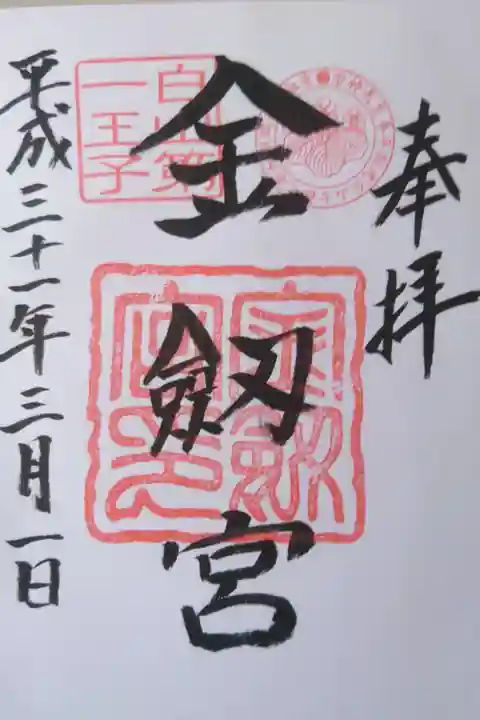 奉拝
金劔宮
平成三十一年三月一日
白山第
一王子
金劔
宮印